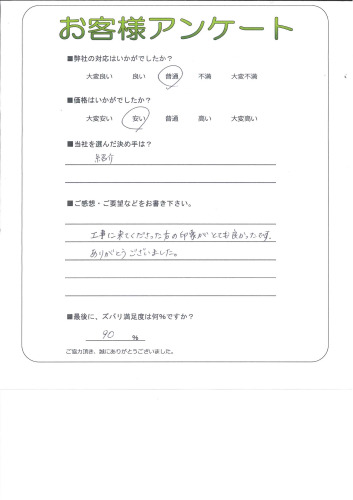 お客様アンケート
■弊社の対応はいかがでしたか？
大変良い 良い 普通 不満 大変不満
■価格はいかがでしたか？
大変安い 安い 普通 高い 大変高い
■当社を選んだ決め手は？
紹介
■ご感想・ご要望などをお書き下さい。
工事に来てくださった方の印象がとても良かったです。
ありがとうございました。
■最後に、ズバリ満足度は何％ですか？
90 %
ご協力頂き、誠にありがとうございました。